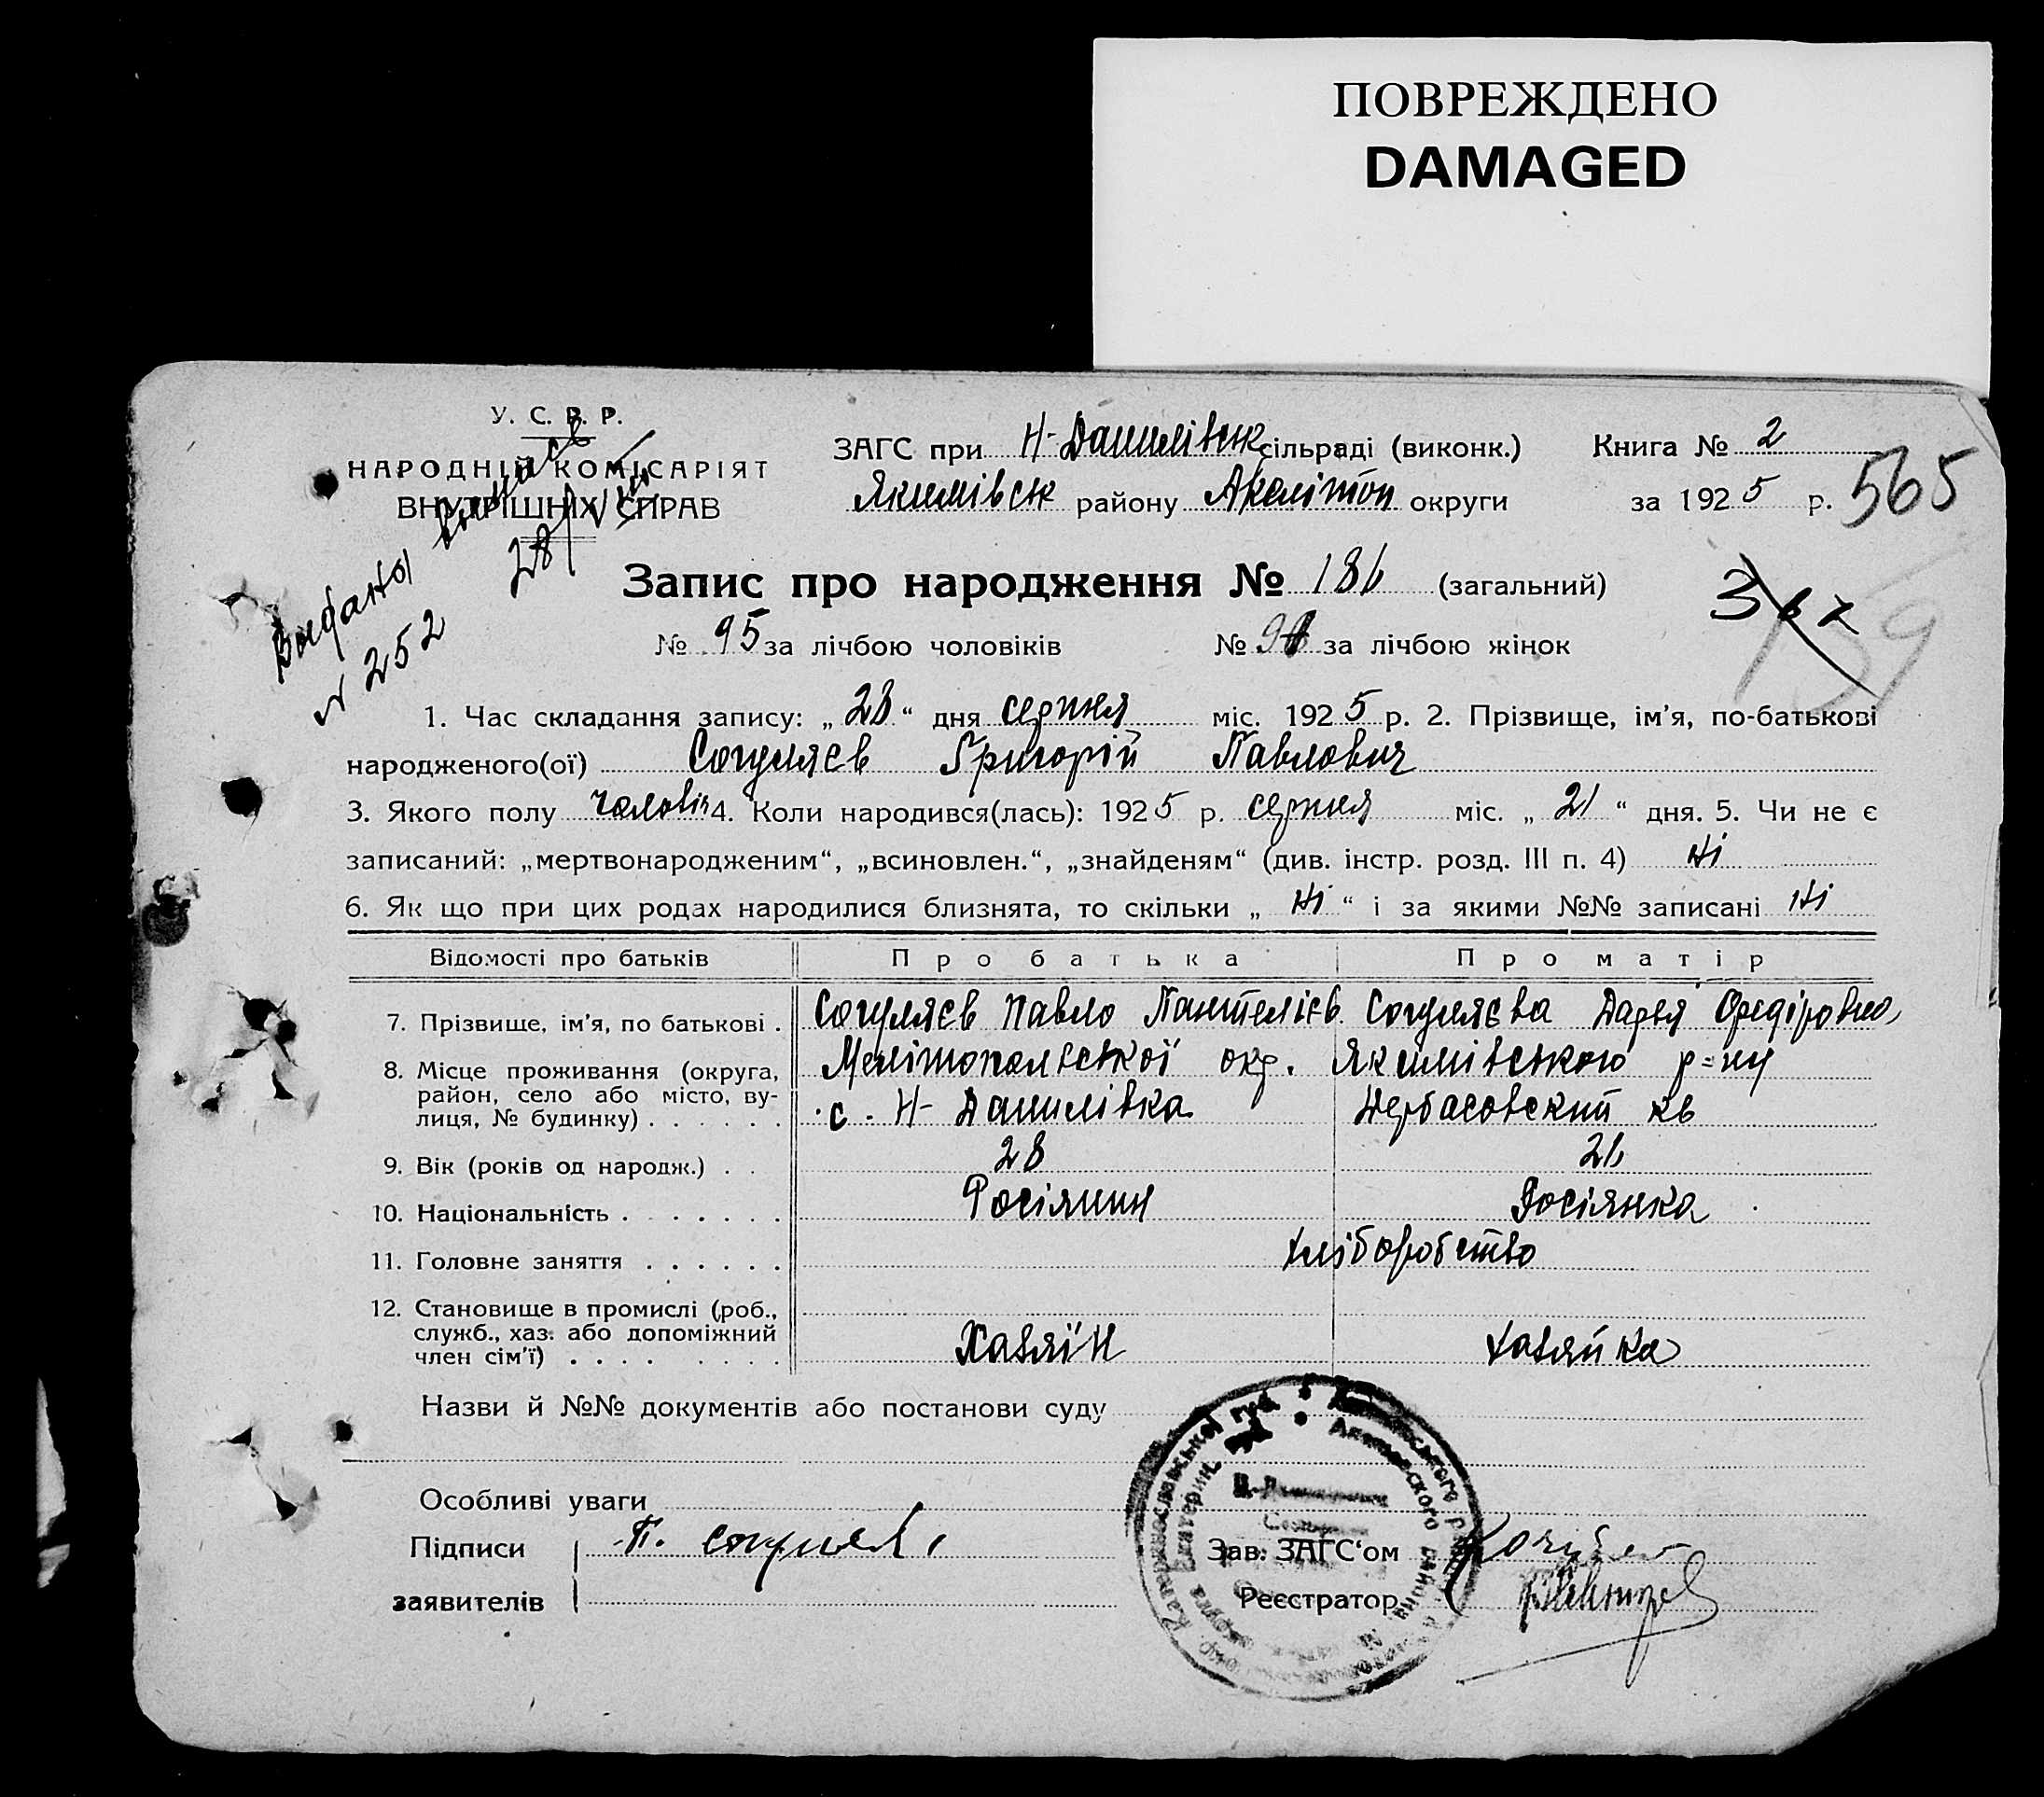 ПОВРЕЖДЕНО
DAMAGED
У. С. Р. Р.
НАРОДНІЙ КОМІСАРІЯТ
ВНУТРІШНІХ СПРАВ
ЗАГС при Н-Данилівськ сільраді (виконк.)
Якимівськ району Мелітоп округи
Книга № 2
за 1925 р. 565
Выдана
28/V
N 252
Запис про народження № 186 (загальний)
№ 95 за лічбою чоловіків № за лічбою жінок
159
1. Час складання запису: „ 28 “ дня серпня міс. 1925 р. 2. Прізвище, ім’я, по-батькові
народженого(ої) Согуляєв Григорій Павлович
3. Якого полу чоловіч 4. Коли народився(лась): 1925 р. серпня міс. „ 21 “ дня. 5. Чи не є
записаний: „мертвонародженим“, „всиновлен.“, „знайденям“ (див. інстр. розд. III п. 4) Ні
6. Як що при цих родах народилися близнята, то скільки „ Ні “ і за якими №№ записані Ні
Відомості про батьків Про батька Про матір
7. Прізвище, ім’я, по батькові . Согуляєв Павло Пантелієв. Согуляєва Дарья Федіровна
8. Місце проживання (округа, район, село або місто, вулиця, № будинку) . . . . . . Мелітопольської окр. Якимівського р=ну
с. Н-Данилівка Щербасовский кв
9. Вік (років од народж.) . . 28 26
10. Національність . . . . . . . Росіянин Росіянка
11. Головне заняття . . . . . . хліборобство
12. Становище в промислі (роб., служб., хаз. або допоміжний член сім’ї) . . . . . . . . Хазяїн хазяйка
Назви й №№ документів або постанови суду
Особливі уваги
Підписи П. Согуляєв
заявителів
Зав. ЗАГС‘ом
Реєстратор